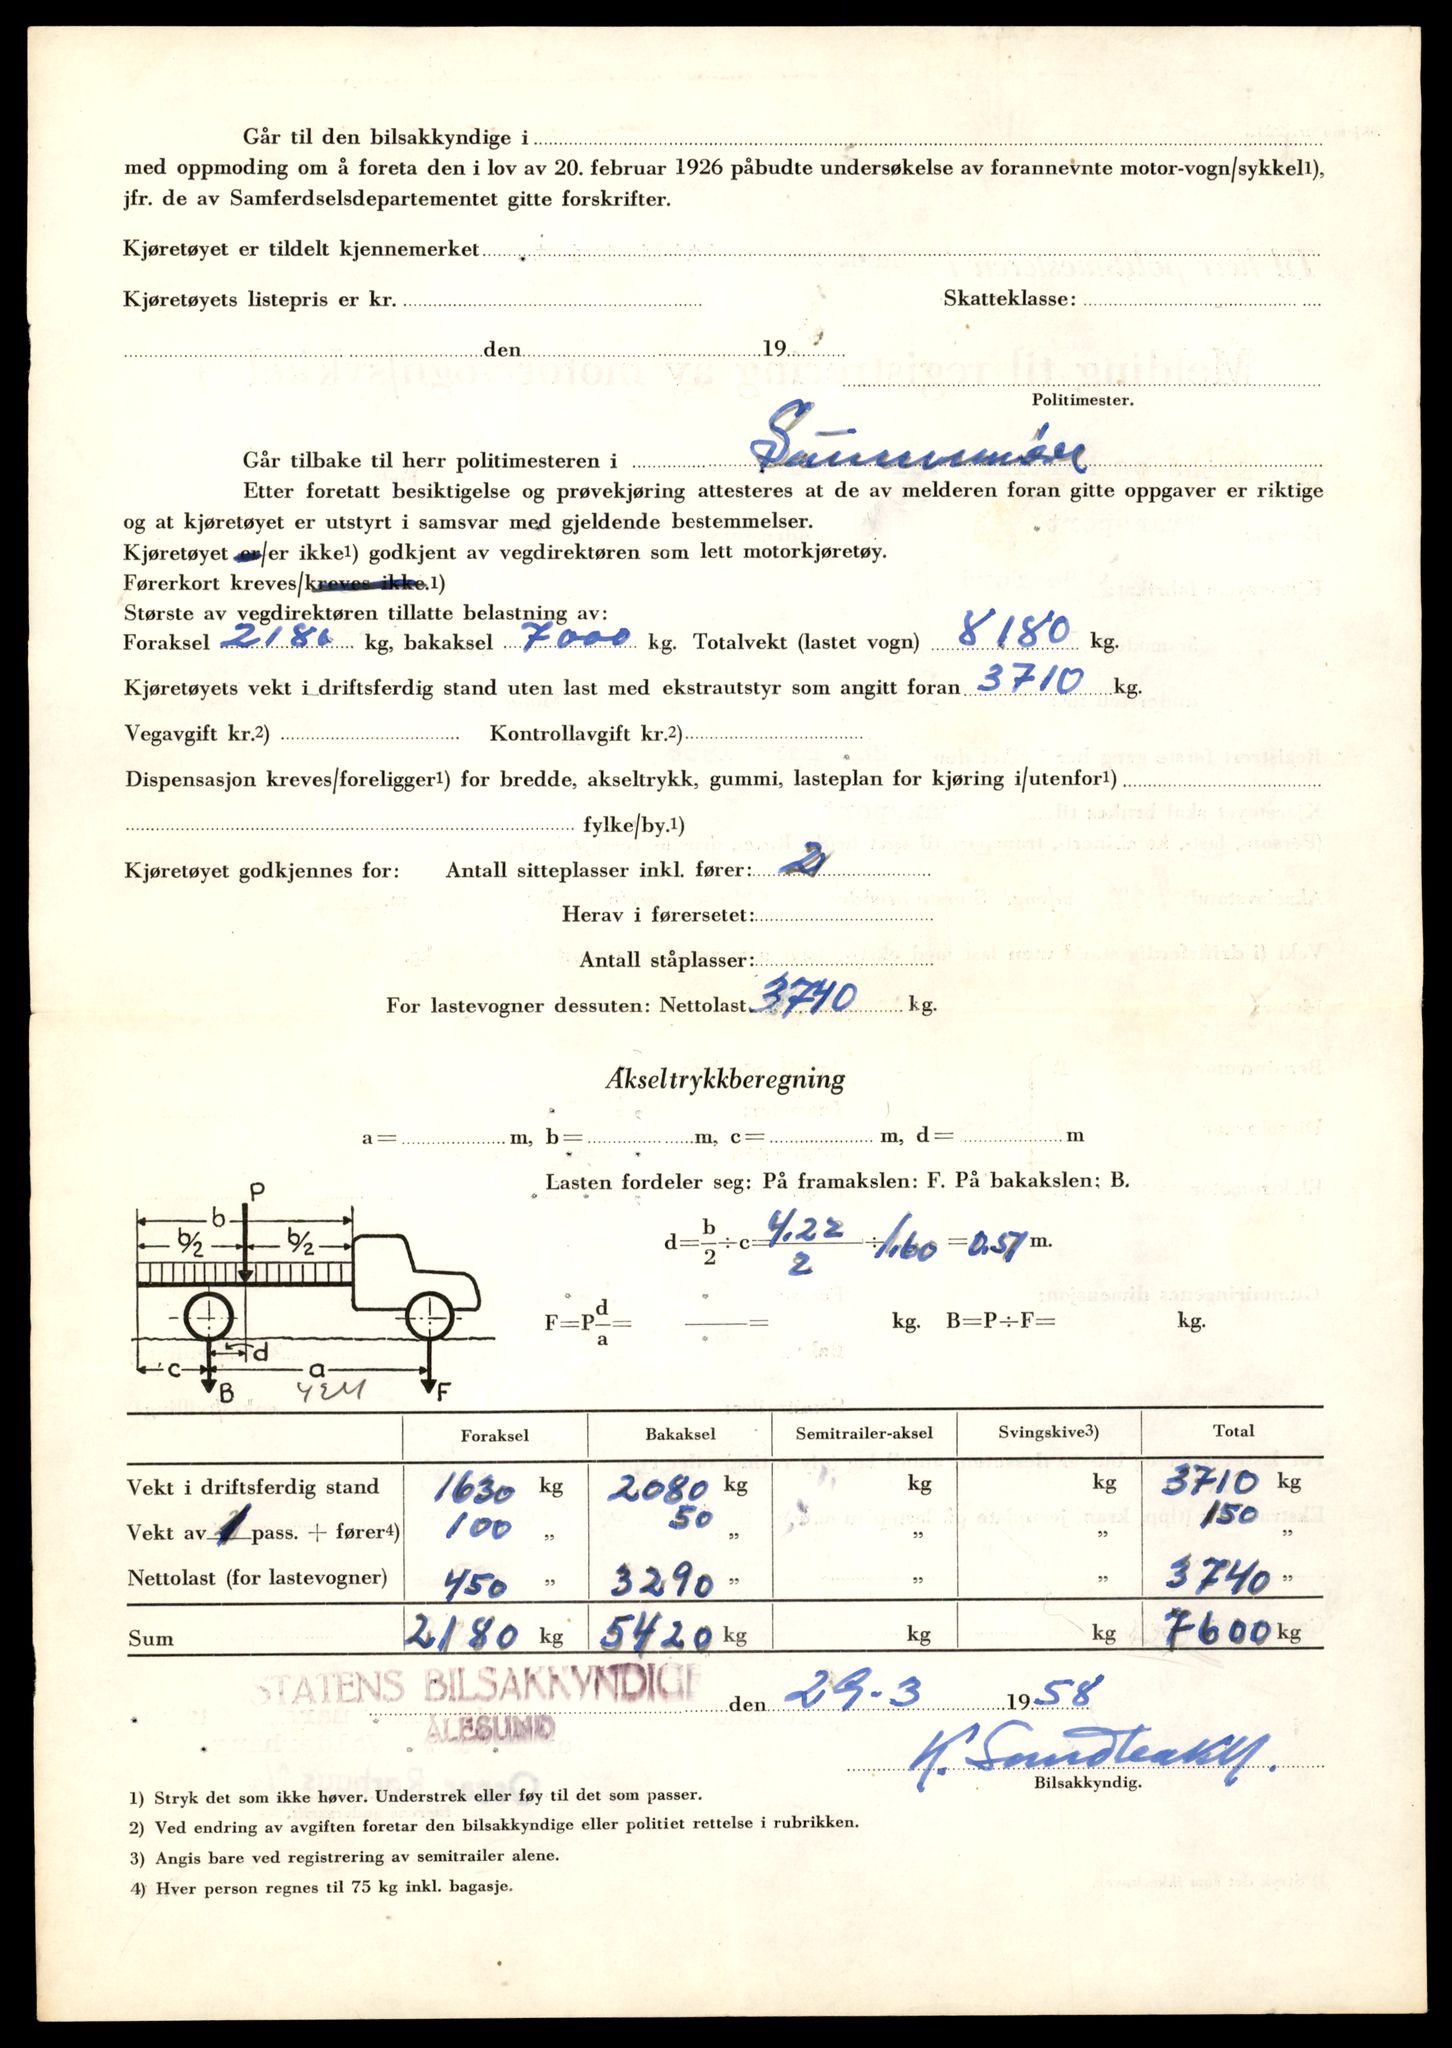 Går til den bilsakkyndige i
med oppmoding om å foreta den i lov av 20. februar 1926 påbudte undersøkelse av forannevnte motor-vogn/sykkel1),
jfr. de av Samferdselsdepartementet gitte forskrifter.
Kjøretøyet er tildelt kjennemerket
Kjøretøyets listepris er kr. Skatteklasse:
den 19
Politimester.
Går tilbake til herr politimesteren i Sunnmøre
Etter foretatt besiktigelse og prøvekjøring attesteres at de av melderen foran gitte oppgaver er riktige
og at kjøretøyet er utstyrt i samsvar med gjeldende bestemmelser.
Kjøretøyet er/er ikke1) godkjent av vegdirektøren som lett motorkjøretøy.
Førerkort kreves/kreves ikke.1)
Største av vegdirektøren tillatte belastning av:
Foraksel 2180 kg, bakaksel 7000 kg. Totalvekt (lastet vogn) 8180 kg.
Kjøretøyets vekt i driftsferdig stand uten last med ekstrautstyr som angitt foran 3710 kg.
Vegavgift kr.2) Kontrollavgift kr.2)
Dispensasjon kreves/foreligger1) for bredde, akseltrykk, gummi, lasteplan for kjøring i/utenfor1)
fylke/by.1)
Kjøretøyet godkjennes for: Antall sitteplasser inkl. fører: 2
Herav i førersetet:
Antall ståplasser:
For lastevogner dessuten: Nettolast 3740 kg.
Akseltrykkberegning
a= m, b= m, c= m, d= m
Lasten fordeler seg: På framakslen: F. På bakakslen: B.
d=b/2÷c= 4.22/2 ÷ 1.60 = 0.51 m.
F=P d/a= = kg. B=P÷F= kg.
P
b
b/2 b/2
c d a
B F
Foraksel Bakaksel Semitrailer-aksel Svingskive3) Total
Vekt i driftsferdig stand 1630 kg 2080 kg kg kg 3710 kg
Vekt av 1 pass. + fører4) 100 „ 50 „ „ „ 150 „
Nettolast (for lastevogner) 450 „ 3290 „ „ „ 3740 „
Sum 2180 kg 5420 kg kg kg 7600 kg
STATENS BILSAKKYNDIGE den 29-3 1958
ÅLESUND
Bilsakkyndig.
1) Stryk det som ikke høver. Understrek eller føy til det som passer.
2) Ved endring av avgiften foretar den bilsakkyndige eller politiet rettelse i rubrikken.
3) Angis bare ved registrering av semitrailer alene.
4) Hver person regnes til 75 kg inkl. bagasje.